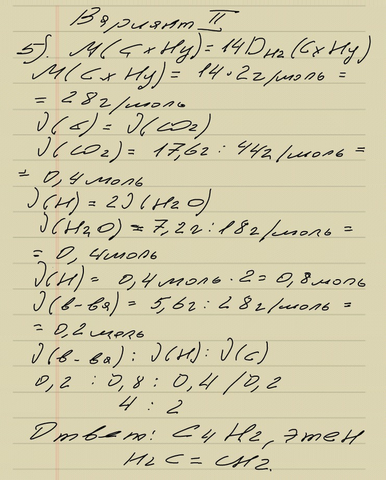 Вариант II
5). M(CxHy) = 14D_H2(CxHy)
M(CxHy) = 14·2г/моль =
= 28г/моль
ν(C) = ν(CO2)
ν(CO2) = 17,6г : 44г/моль =
= 0,4моль
ν(H) = 2ν(H2O)
ν(H2O) = 7,2г : 18г/моль =
= 0,4моль
ν(H) = 0,4моль · 2 = 0,8моль
ν(в-ва) = 5,6г : 28г/моль =
= 0,2моль
ν(в-ва) : ν(H) : ν(C)
0,2 : 0,8 : 0,4 /0,2
4 : 2
Ответ: C4H2, этен
H2C = CH2.